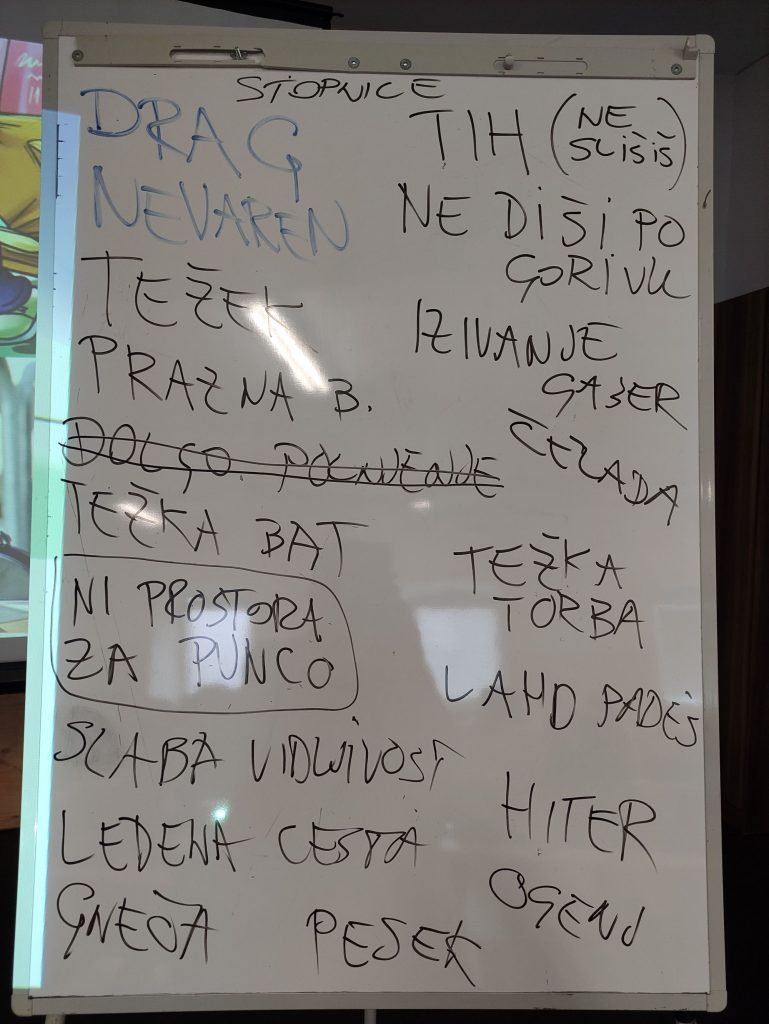 STOPNICE
DRAG
NEVAREN
TEŽEK
PRAZNA B.
DOLGO POLNJENJE
TEŽKA BAT
NI PROSTORA
ZA PUNCO
SLABA VIDLJIVOST
LEDENA CESTA
GNEČA
PESEK
TIH (NE
SLIŠIŠ)
NE DIŠI PO
GORIVU
IZIVANJE
GABER
ČELADA
TEŽKA
TORBA
LAHD PADEŠ
HITER
OGENJ